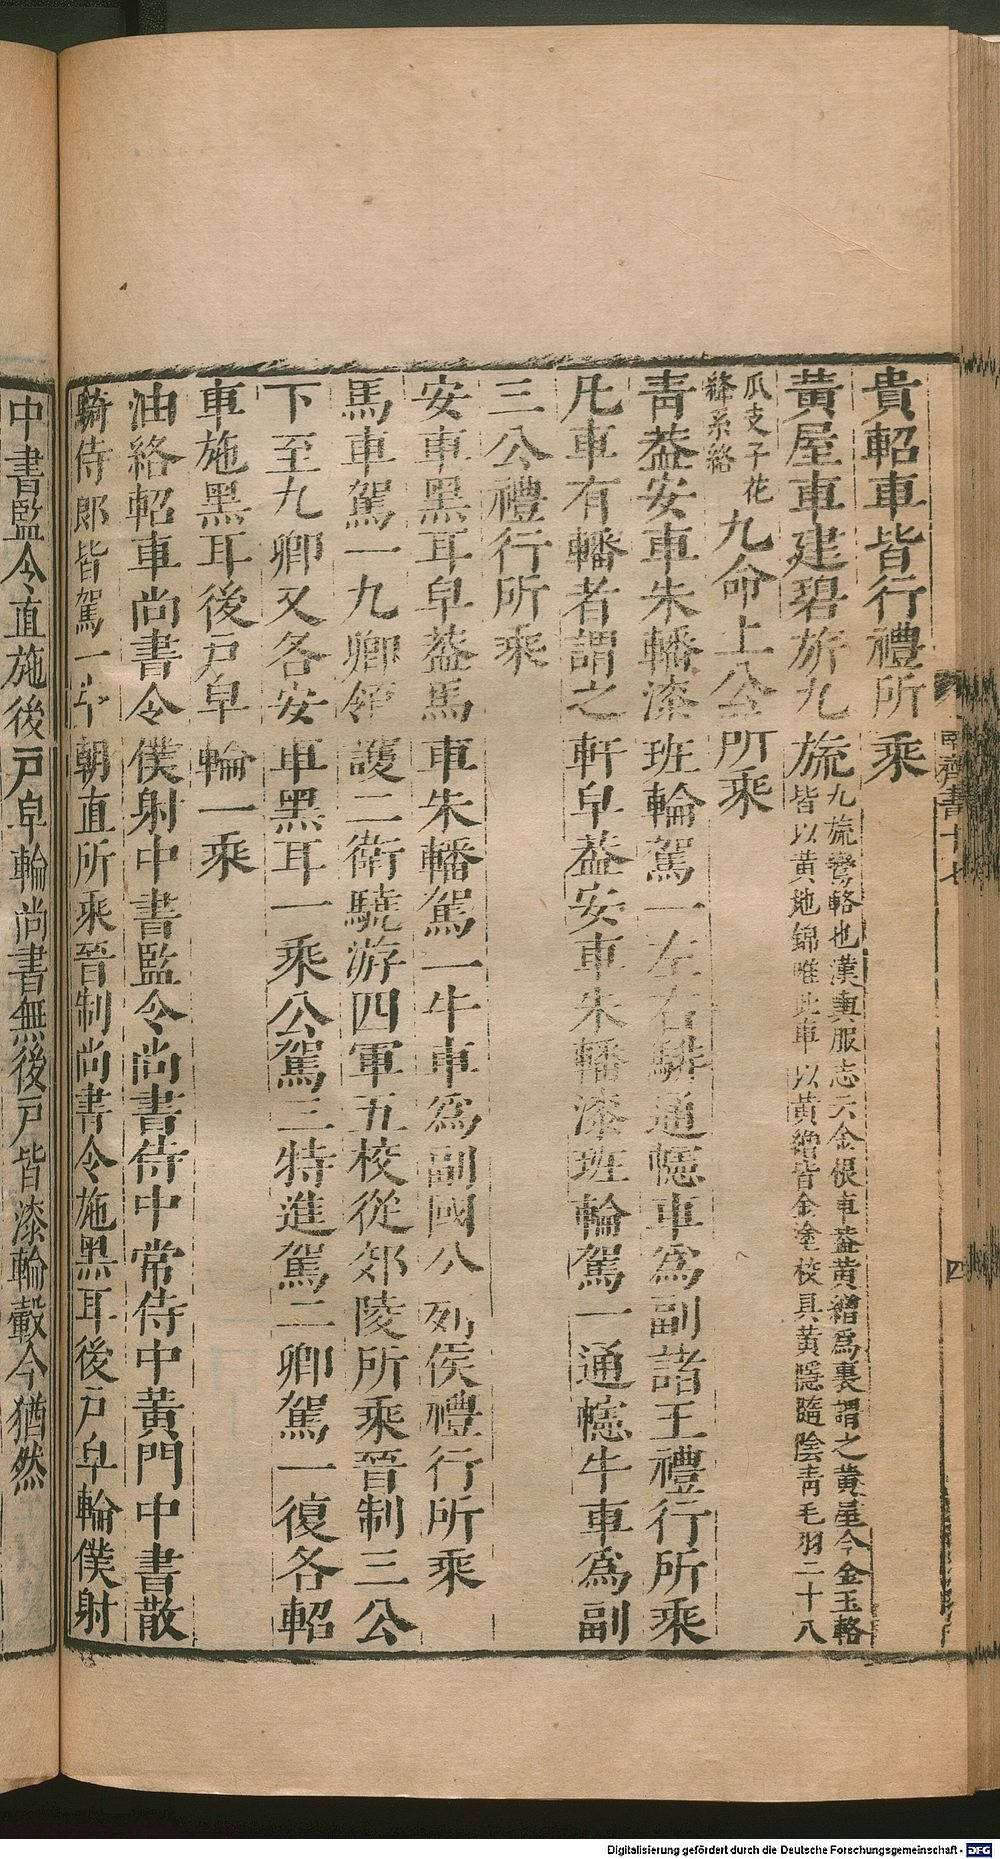 貴軺車皆行禮所乘
黃屋車建碧旂九旒九旒鸞輅也漢輿服志云金根車蓋黃繒爲裏謂之黃屋今金玉輅
皆以黃地錦唯此車以黃繒皆金塗校具黃隱隨陰靑毛羽二十八
爪支子花
絳系絡九命上公所乘
靑蓋安車朱轓漆班輪駕一左右騑通幰車爲副諸王禮行所乘
凡車有轓者謂之軒皁蓋安車朱轓漆班輪駕一通幰牛車爲副
三公禮行所乘
安車黑耳皁蓋馬車朱轓駕一牛車爲副國公列侯禮行所乘
馬車駕一九卿領護二衛驍游四軍五校從郊陵所乘晉制三公
下至九卿又各安車黑耳一乘公駕三特進駕二卿駕一復各軺
車施黑耳後戶皁輪一乘
油絡軺車尚書令僕射中書監令尚書侍中常侍中黃門中書散
騎侍郎皆駕一牛朝直所乘晉制尚書令施黑耳後戶皁輪僕射
中書監令直施後戶皁輪尚書無後戶皆漆輪轂今猶然
齊書十七
四
Digitalisierung gefördert durch die Deutsche Forschungsgemeinschaft - DFG